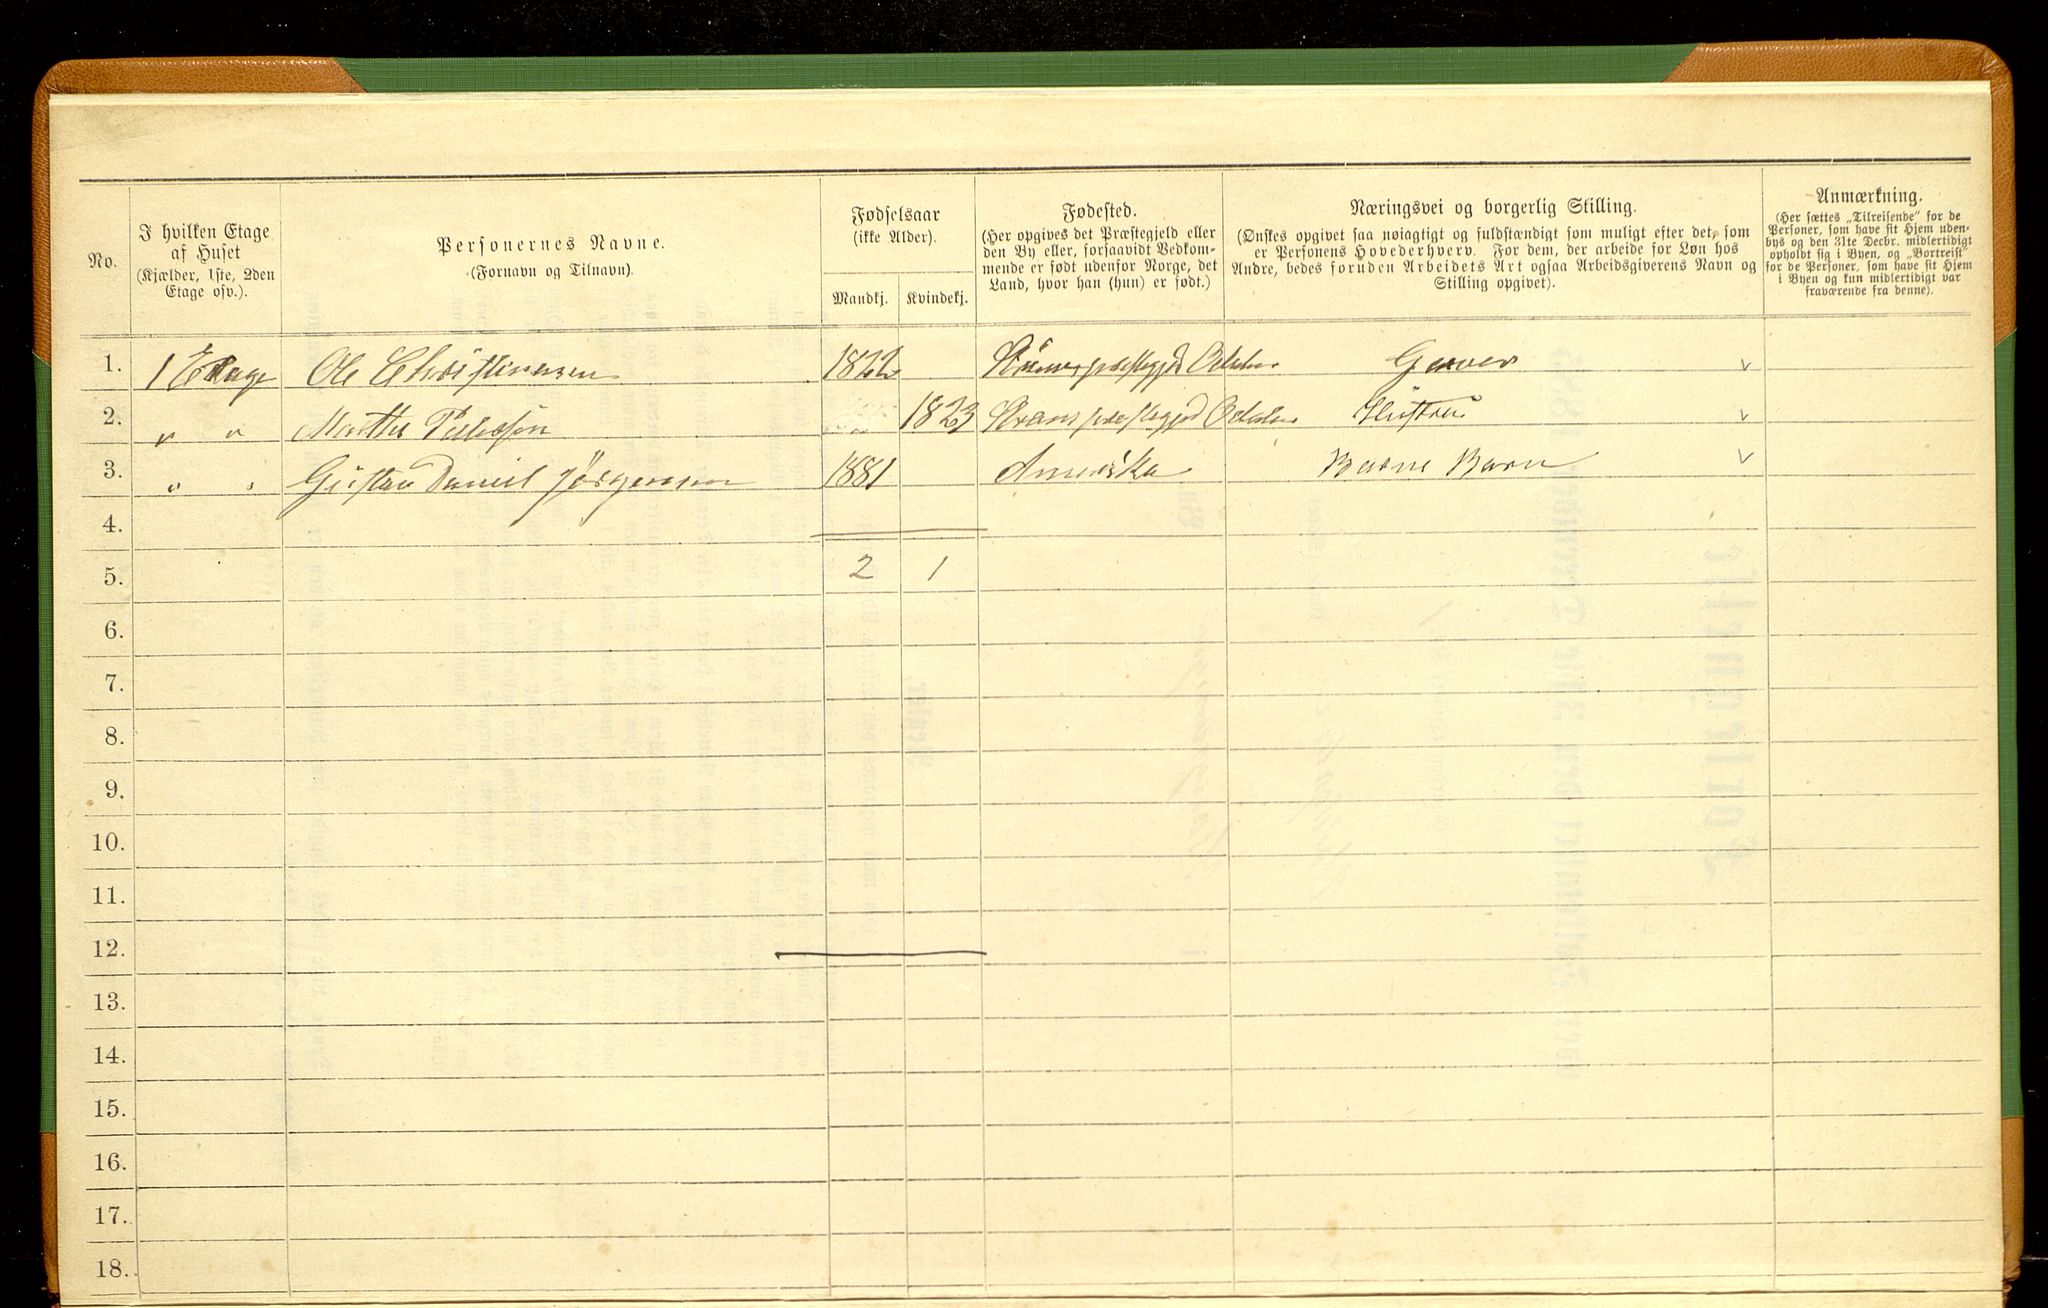 No.
I hvilken Etage
af Huset
(Kjælder, 1ste, 2den
Etage osv.).
Personernes Navne.
(Fornavn og Tilnavn).
Fødselsaar
(ikke Alder).
Mandkj.
Kvindekj.
Fødested.
(Her opgives det Præstegjeld eller
den By eller, forsaavidt Vedkom-
mende er født udenfor Norge, det
Land, hvor han (hun) er født.)
Næringsvei og borgerlig Stilling.
(Ønskes opgivet saa nøiagtigt og fuldstændigt som muligt efter det, som
er Personens Hovederhverv. For dem, der arbeide for Løn hos
Andre, bedes foruden Arbeidets Art ogsaa Arbeidsgiverens Navn og
Stilling opgivet).
Anmærkning.
(Her sættes „Tilreisende" for de
Personer, som have sit Hjem uden-
bys og den 31te Decbr. midlertidigt
opholdt sig i Byen, og „Bortreist"
for de Personer, som have sit Hjem
i Byen og kun midlertidigt var
fraværende fra denne).
1. 1 Etage Ole Christiansen 1822 Odalen Garver
2. " " Marthe 1823 Odalen Hustru
3. " " Gustav Daniel Jørgensen 1881 Amerika Barne Barn
4.
5. 2 1
6.
7.
8.
9.
10.
11.
12.
13.
14.
15.
16.
17.
18.